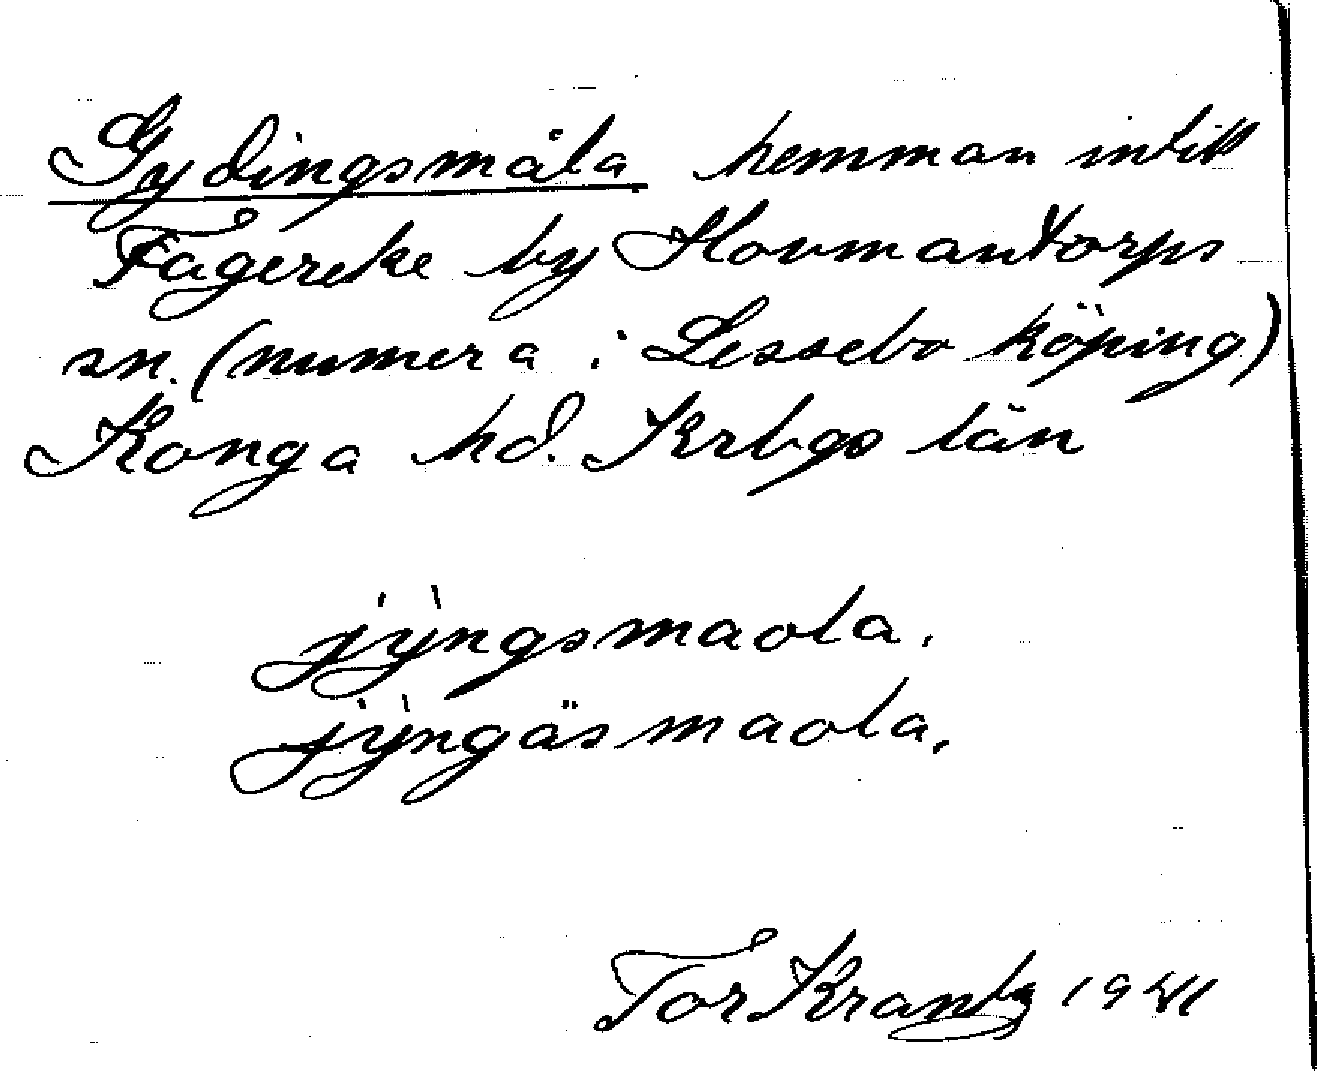 Gydingsmåla hemman intill
Fagereke by Hovmantorps
sn. (numera i Lessebo köping)
Konga hd. Krbgs län
jýngsmaola.
jýngäsmaola.
Tor Krantz 1941